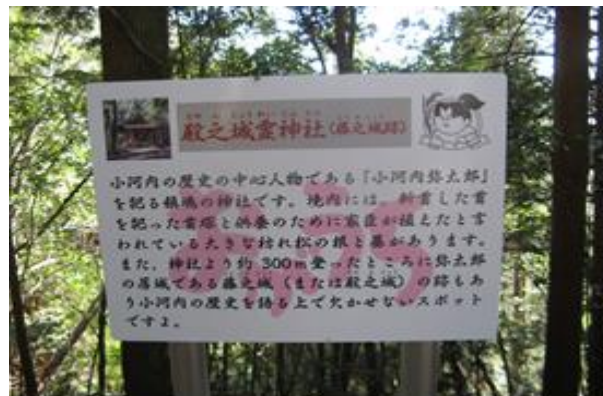 殿之城霊神社(藤之城跡)
小河内の歴史の中心人物である「小河内弥太郎」
を祀る银地の神社です。境内には、斬首した首
を祀った首塚と供養のために家臣が植えたと言
われている大きな枯れ松の根と墓があります。
また、神社より約300m登ったところに弥太郎
の居城である藤之城（または殿之城）の跡もあ
り小河内の歴史を語る上で欠かせないスポット
ですよ。